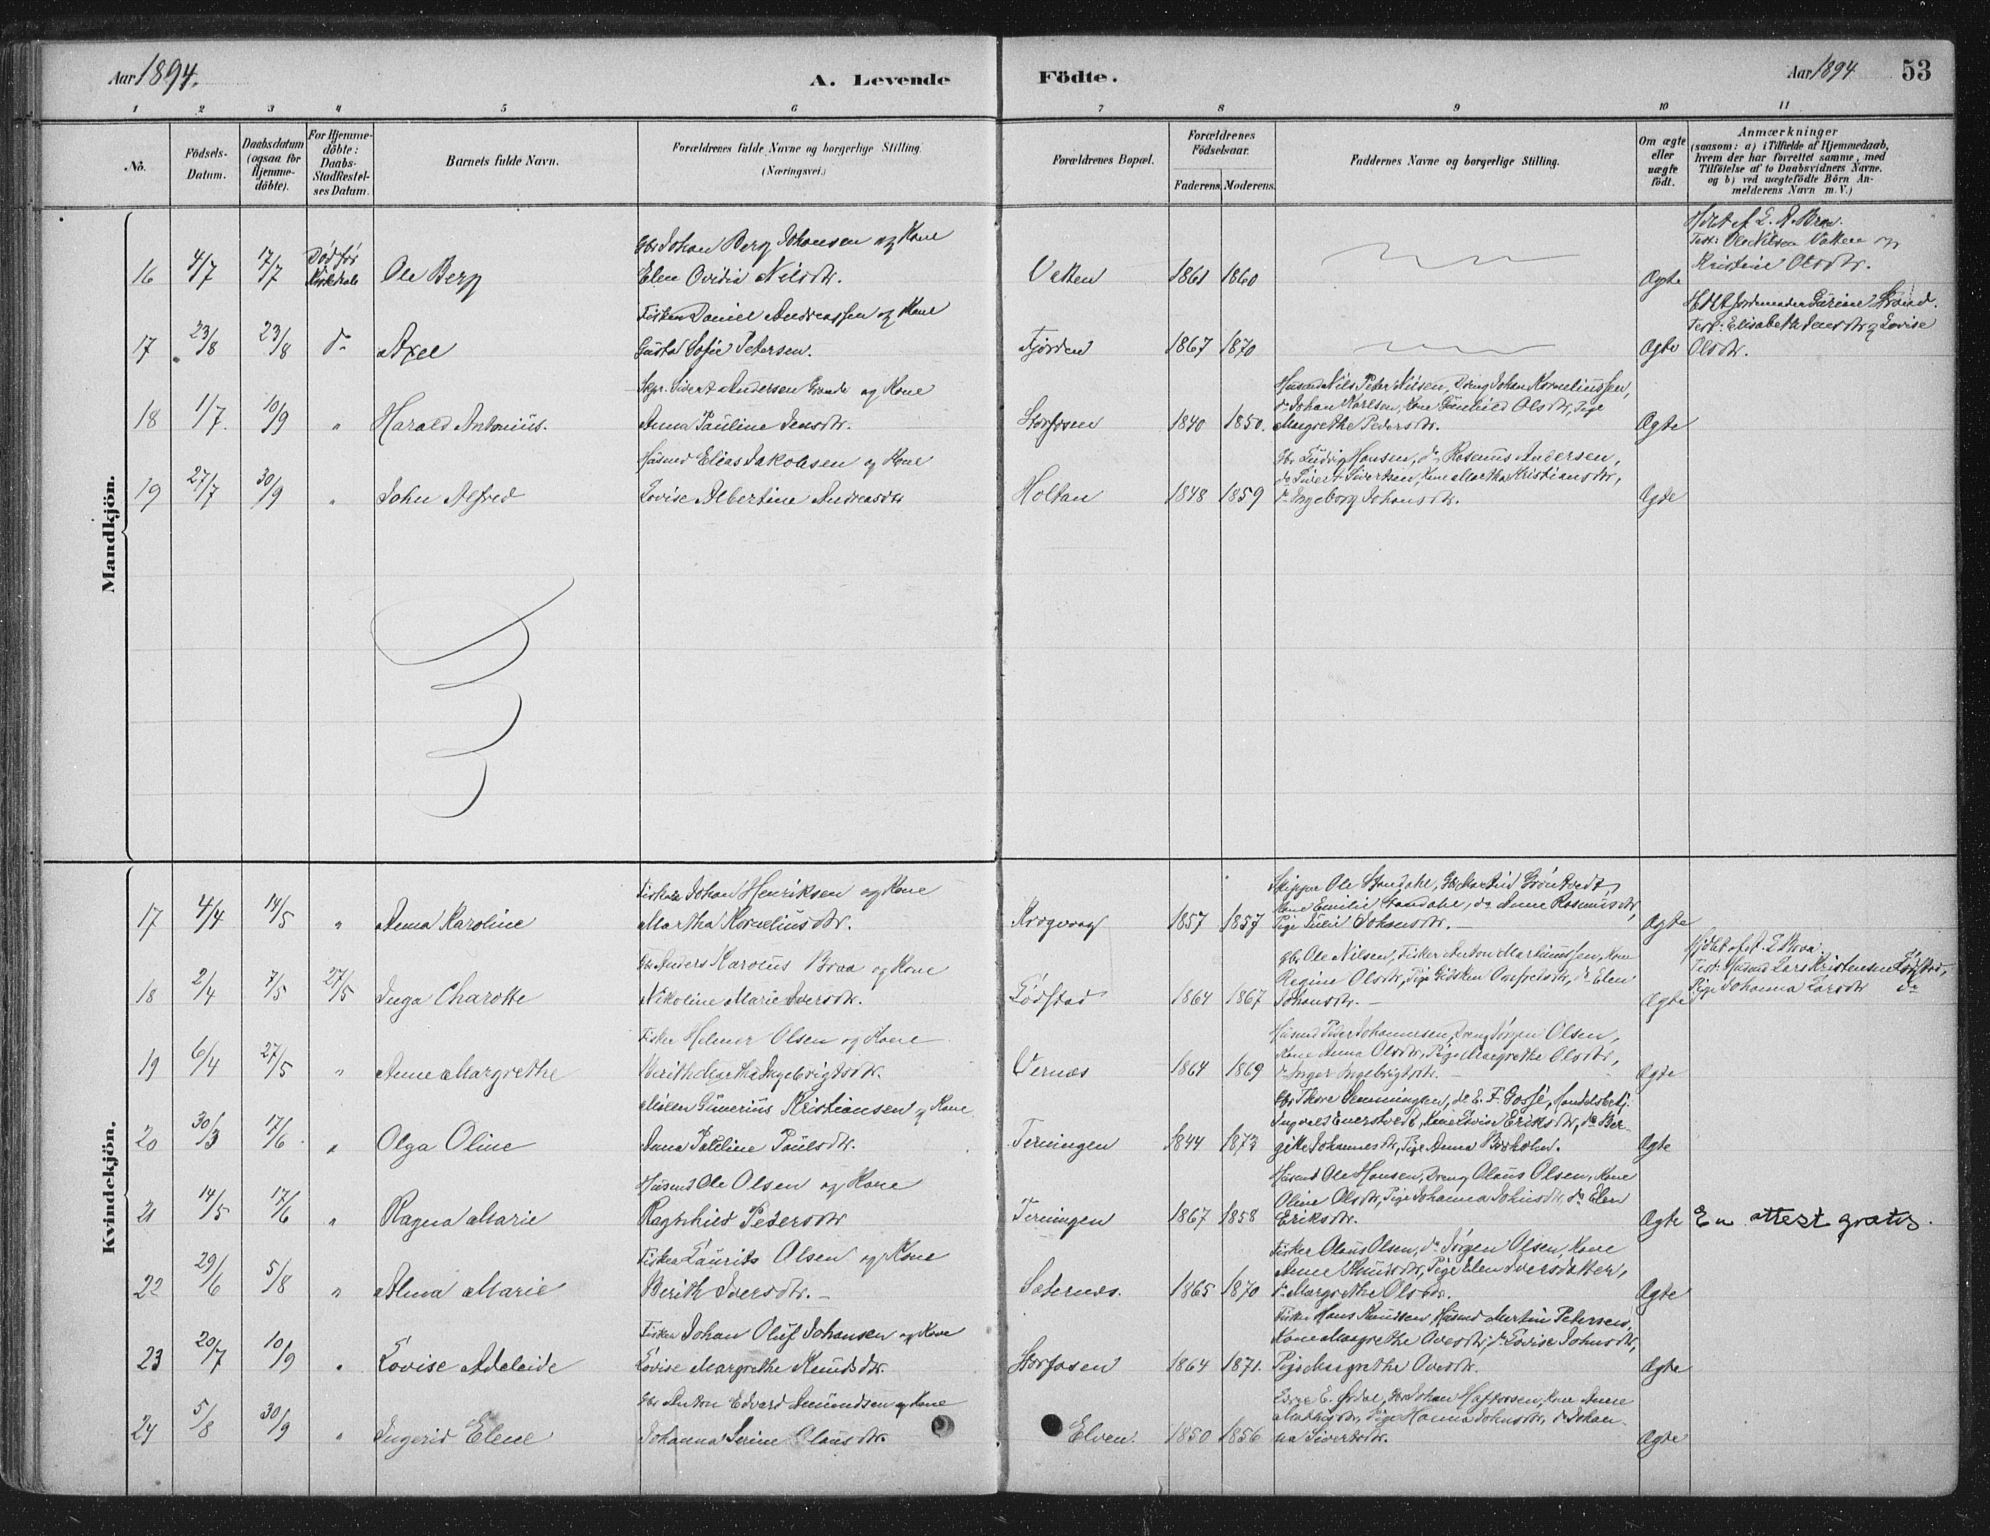 Aar 1894.
A. Levende
Födte.
Aar 1894
53
1 2 3 4 5 6 7 8 9 10 11
No.
Födsels-
Datum.
Daabsdatum
(ogsaa for
Hjemme-
döbte).
For Hjemme-
döbte:
Daabs-
Stadfæstel-
ses Datum.
Barnets fulde Navn.
Forældrenes fulde Navne og borgerlige Stilling.
(Næringsvei.)
Forældrenes Bopæl.
Forældrenes
Födselsaar.
Faderens. Moderens.
Faddernes Navne og borgerlige Stilling.
Om ægte
eller
uægte
födt.
Anmærkninger
(saasom: a) i Tilfælde af Hjemmedaab,
hvem der har forrettet samme, med
Tilföielse af to Daabsvidners Navne.
og b) ved uægtefödte Börn An-
melderens Navn m. V.)
Mandkjön.
16 4/7 17/7 Död før Ole Berg
Gbr Johan Berg Johansen og Kone
Elen Ovidia Nilsdtr.
Vatten 1861 1860 Ægte
Test: Ole Nilsen Vatten og
Kristine Olsdtr.
17 23/8 23/8 do Axel
Fisker Daniel Andreassen og Kone
Gusta Sofie Petersen.
Fjorden 1867 1870 Ægte
Hdbt Jordemoder Gurine Strand.
Test: Elisabeth Jensdtr og Lovise
Olsdtr.
18 1/7. 10/9 " Harald Antonius.
Skpr. Sivert Andersen Grande og Kone
Anna Pauline Jensdtr.
Storfosen 1840 1850.
Husmd Nils Peter Nilsen, Dreng Johan Korneliussen,
do Johan Karlsen, Kone Gunhild Olsdtr, Pige
Margrethe Pedersdtr.
Ægte
19 27/7 30/9 " John Alfred
Husmd Elias Jakobsen og Kone
Lovise Albertine Andreasdtr
Holtan 1848 1859
Gbr Ludvig Hansen, do Rasmus Andersen,
do Sivert Sivertsen, Kone Martha Kristiansdtr,
do Ingeborg Johansdtr.
Ægte
Kvindekjön.
17 4/4 14/5 " Anna Karoline
Fisker Johan Henriksen og Kone
Martha Korneliusdtr.
Krogvaag 1857 1857
Skipper Ole Standahl, Gbr Martin Gröntvedt,
Kone Emilie Standahl, do Anne Rasmusdtr,
Pige Julie Johansdtr. —
Ægte
18 2/4 7/5 27/5 Inga Charotte
Gbr Anders Karolius Braa og Kone
Nikoline Marie Iversdtr.
Lödstad 1864 1867
Gbr Ole Nilsen, Fisker Anton Martinussen, Kone
Regine Olsdtr, Pige Gidsken Arnfredsdtr, do Elen
Johansdtr. —
Ægte
Test: Husmd Lars Kristensen Lödstad,
Pige Johanna Larsdtr do
19 6/4 27/5 " Anne Margrethe
Fisker Helmer Olsen og Kone
Berith Martha Ingebrigtsdtr.
Vernæs 1864 1869
Husmd Peder Johannesen, Dreng Jörgen Olsen,
Kone Anna Olsdtr, Pige Margrethe Olsdtr,
do Inger Ingebrigtsdtr. —
Ægte
20 30/3 17/6. " Olga Oline
Möller Gunerius Kristiansen og Kone
Anna Pauline Paulsdtr.
Terningen 1844 1873
Gbr Thore Henningsen, do E. F. Gossé, Handelsbetj.
Ingvald Enerstvedt, Kone Lovise Eriksdtr, do Ber-
gitte Johannesdtr, Pige Anna Borkholm.
Ægte
21 14/5 17/6 " Ragna Marie
Husmd Ole Olsen og Kone
Ragnhild Pedersdtr
Terningen 1867 1858
Husmd Ole Hansen, Dreng Olaus Olsen, Kone
Oline Olsdtr, Pige Johanna Johnsdtr, do Elen
Eriksdtr.
Ægte En attest gratis.
22 29/6 5/8 " Alma Marie
Fisker Laurits Olsen og Kone
Berith Iversdtr. —
Sæternes. 1865 1870
Fisker Olaus Olsen, do Jörgen Olsen, Kone
Anne Knudsdtr, Pige Elen Iversdatter,
do Margrethe Olsdtr.
Ægte
23 20/7 10/9 " Lovise Adeleide
Fisker Johan Oluf Johansen og Kone
Lovise Margrethe Knudsdtr.
Storfosen 1864 1871.
Fisker Hans Knudsen, Husmd Martin Petersen,
Kone Margrethe Ovesdtr, do Lovise Johnsdtr,
Pige Margrethe Ovesdtr.
Ægte
24 5/8 30/9 " Ingerid Elene
Gbr Anton Edvard Amundsen og Kone
Johanna Serine Olausdtr.
Elven. 1850 1856
Johan Hafforsen, Kone Anne
Pige Hanna Johnsdtr, do Johan-
na Sivertsdtr.
Ægte